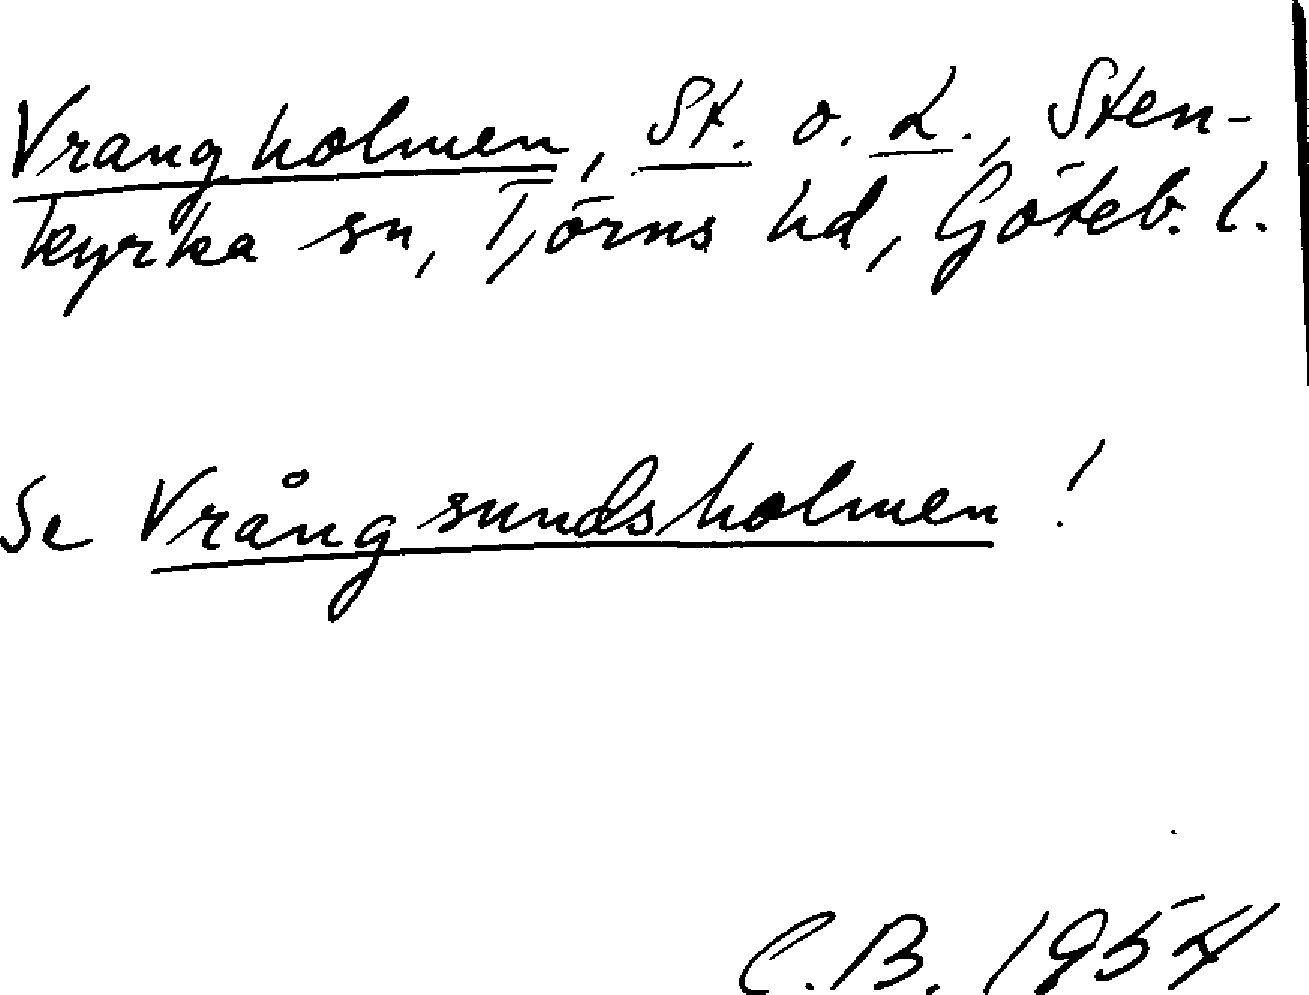 Vrangholmen, St. o. L., Sten-
kyrka sn, Tjörns hd, Göteb. l.
Se Vrångsundsholmen!
C.B. 1954